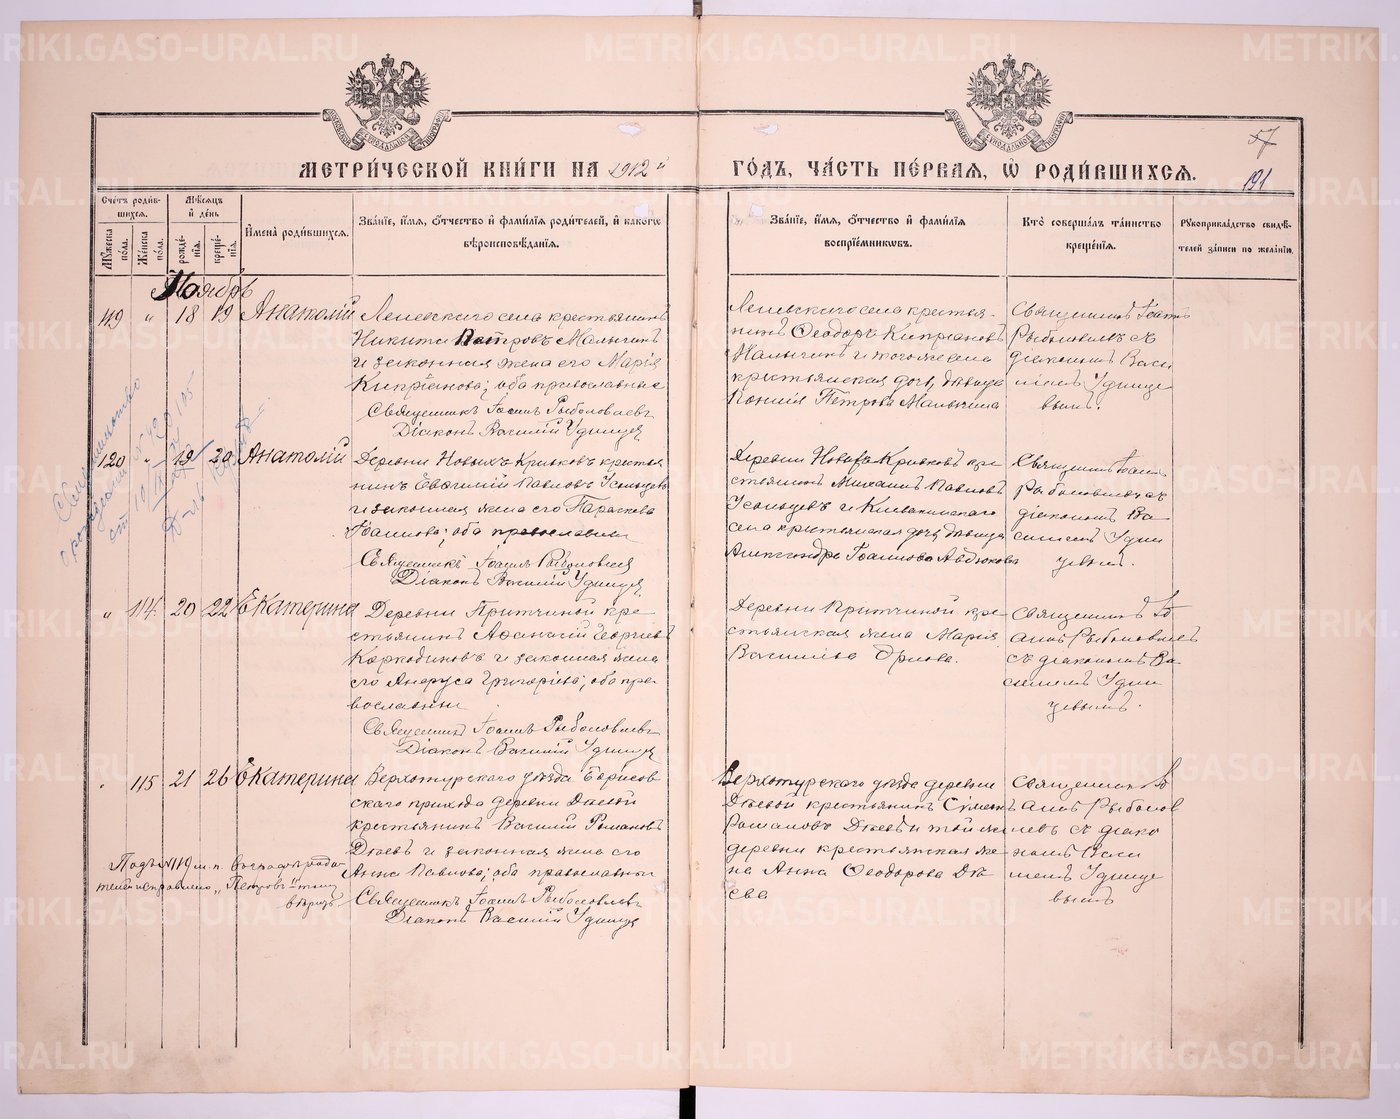 МЕТРИЧЕСКОЙ КНИГИ НА 1912й
ГОДЪ, ЧАСТЬ ПЕРВАЯ, Ѡ РОДИВШИХСЯ.
57
191
Счетъ родив-
шихся.
Мѣсяцъ
и день
Мужеска
пола.
Женска
пола.
рожде-
нія.
креще-
нія.
Имена родившихся.
Званіе, имя, отчество и фамилія родителей, и какогѡ
вѣроисповѣданія.
Званіе, имя, отчество и фамилія
воспріемникѡвъ.
Кто совершалъ таинство
крещенія.
Рукоприкладство свидѣ-
телей записи по желанію.
Ноябрь
119 " 18 19 Анатолій
села крестьянинъ
Никита Петровъ Малыгинъ
и законная жена его Марія
Кипріанова; оба православные
Священникъ Іоаннъ Рыболовлевъ
Діаконъ Василій Удинцев
села крестья-
нинъ Ѳеодоръ Кипріановъ
Малыгинъ и того же села
крестьянская дочь, дѣвица
Петрова Малыгина
Священникъ Іоаннъ
Рыболовлевъ съ
діакономъ Васи
ліемъ Удинце
вымъ.
120 " 19 20 Анатолій
Деревни Новыхъ Кривковъ крестья
нинъ Евѳимій Павловъ Усольцевъ
и законная жена его Параскева
Іоаннова; оба православные
Священникъ Іоаннъ Рыболовлев
Діаконъ Василій Удинцев
Деревни Новыхъ Кривковъ кре-
стьянинъ Михаилъ Павловъ
Усольцевъ и
села крестьянская дочь, дѣвица
Александра Іоаннова Авдюкова
Священникъ Іоаннъ
Рыболовлевъ съ
діакономъ Ва
силіемъ Удин
цевымъ.
" 114 20 22 Екатерина
Деревни Притчиной кре-
стьянинъ Аѳанасій Георгіевъ
Коркодиновъ и законная жена
его Григоріева; оба пра-
вославны.
Священникъ Іоаннъ Рыболовлевъ
Діаконъ Василій Удинцев
Деревни Притчиной кре-
стьянская жена Марія
Васильева Орлова.
Священникъ Іо
аннъ Рыболовлевъ
съ діакономъ Ва-
силіемъ Удин
цевымъ.
" 115 21 26 Екатерина
Верхотурскаго уѣзда Борисов
скаго прихода деревни Дѣевой
крестьянинъ Василій Романовъ
Дѣевъ и законная жена его
Анна Павлова; оба православны
Священникъ Іоаннъ Рыболовлевъ
Діаконъ Василій Удинцев
Верхотурскаго уѣзда деревни
Дѣевой крестьянинъ Симеонъ
Романовъ Дѣевъ и той же
деревни крестьянская же-
на Анна Ѳеодорова Дѣ
ева
Священникъ Іо
аннъ Рыболов
левъ съ діако
номъ Васи
ліемъ Удинце
вымъ
Подъ №119 м. п. въ графѣ родит-
телей исправлено "Петровъ" тому
вѣрить
Свидѣтельство
о рожденіи
METRIKI.GASO-URAL.RU